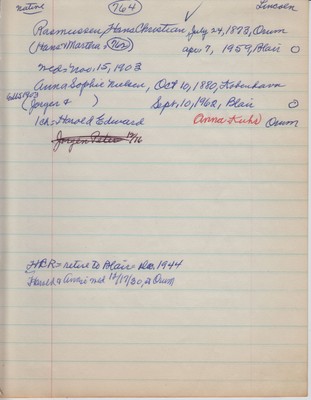 native 764 Lincoln
Rasmussen, Hans Christian July 24, 1873, Orum
(Hans & Martha, 762) apr 7, 1959, Blair O
wed = Nov. 15, 1903
Anna Sophie Nielsen, Oct 10, 1880, Kobenhavn
(Jorgen & ) Sept. 10, 1962, Blair O
1 ch = Harold Edward Anna Kuhr Orum
Jorgen Peter 12/16
HCR = retire to Blair = Dec. 1944
Harold & wed 12/17/30, @ Orum